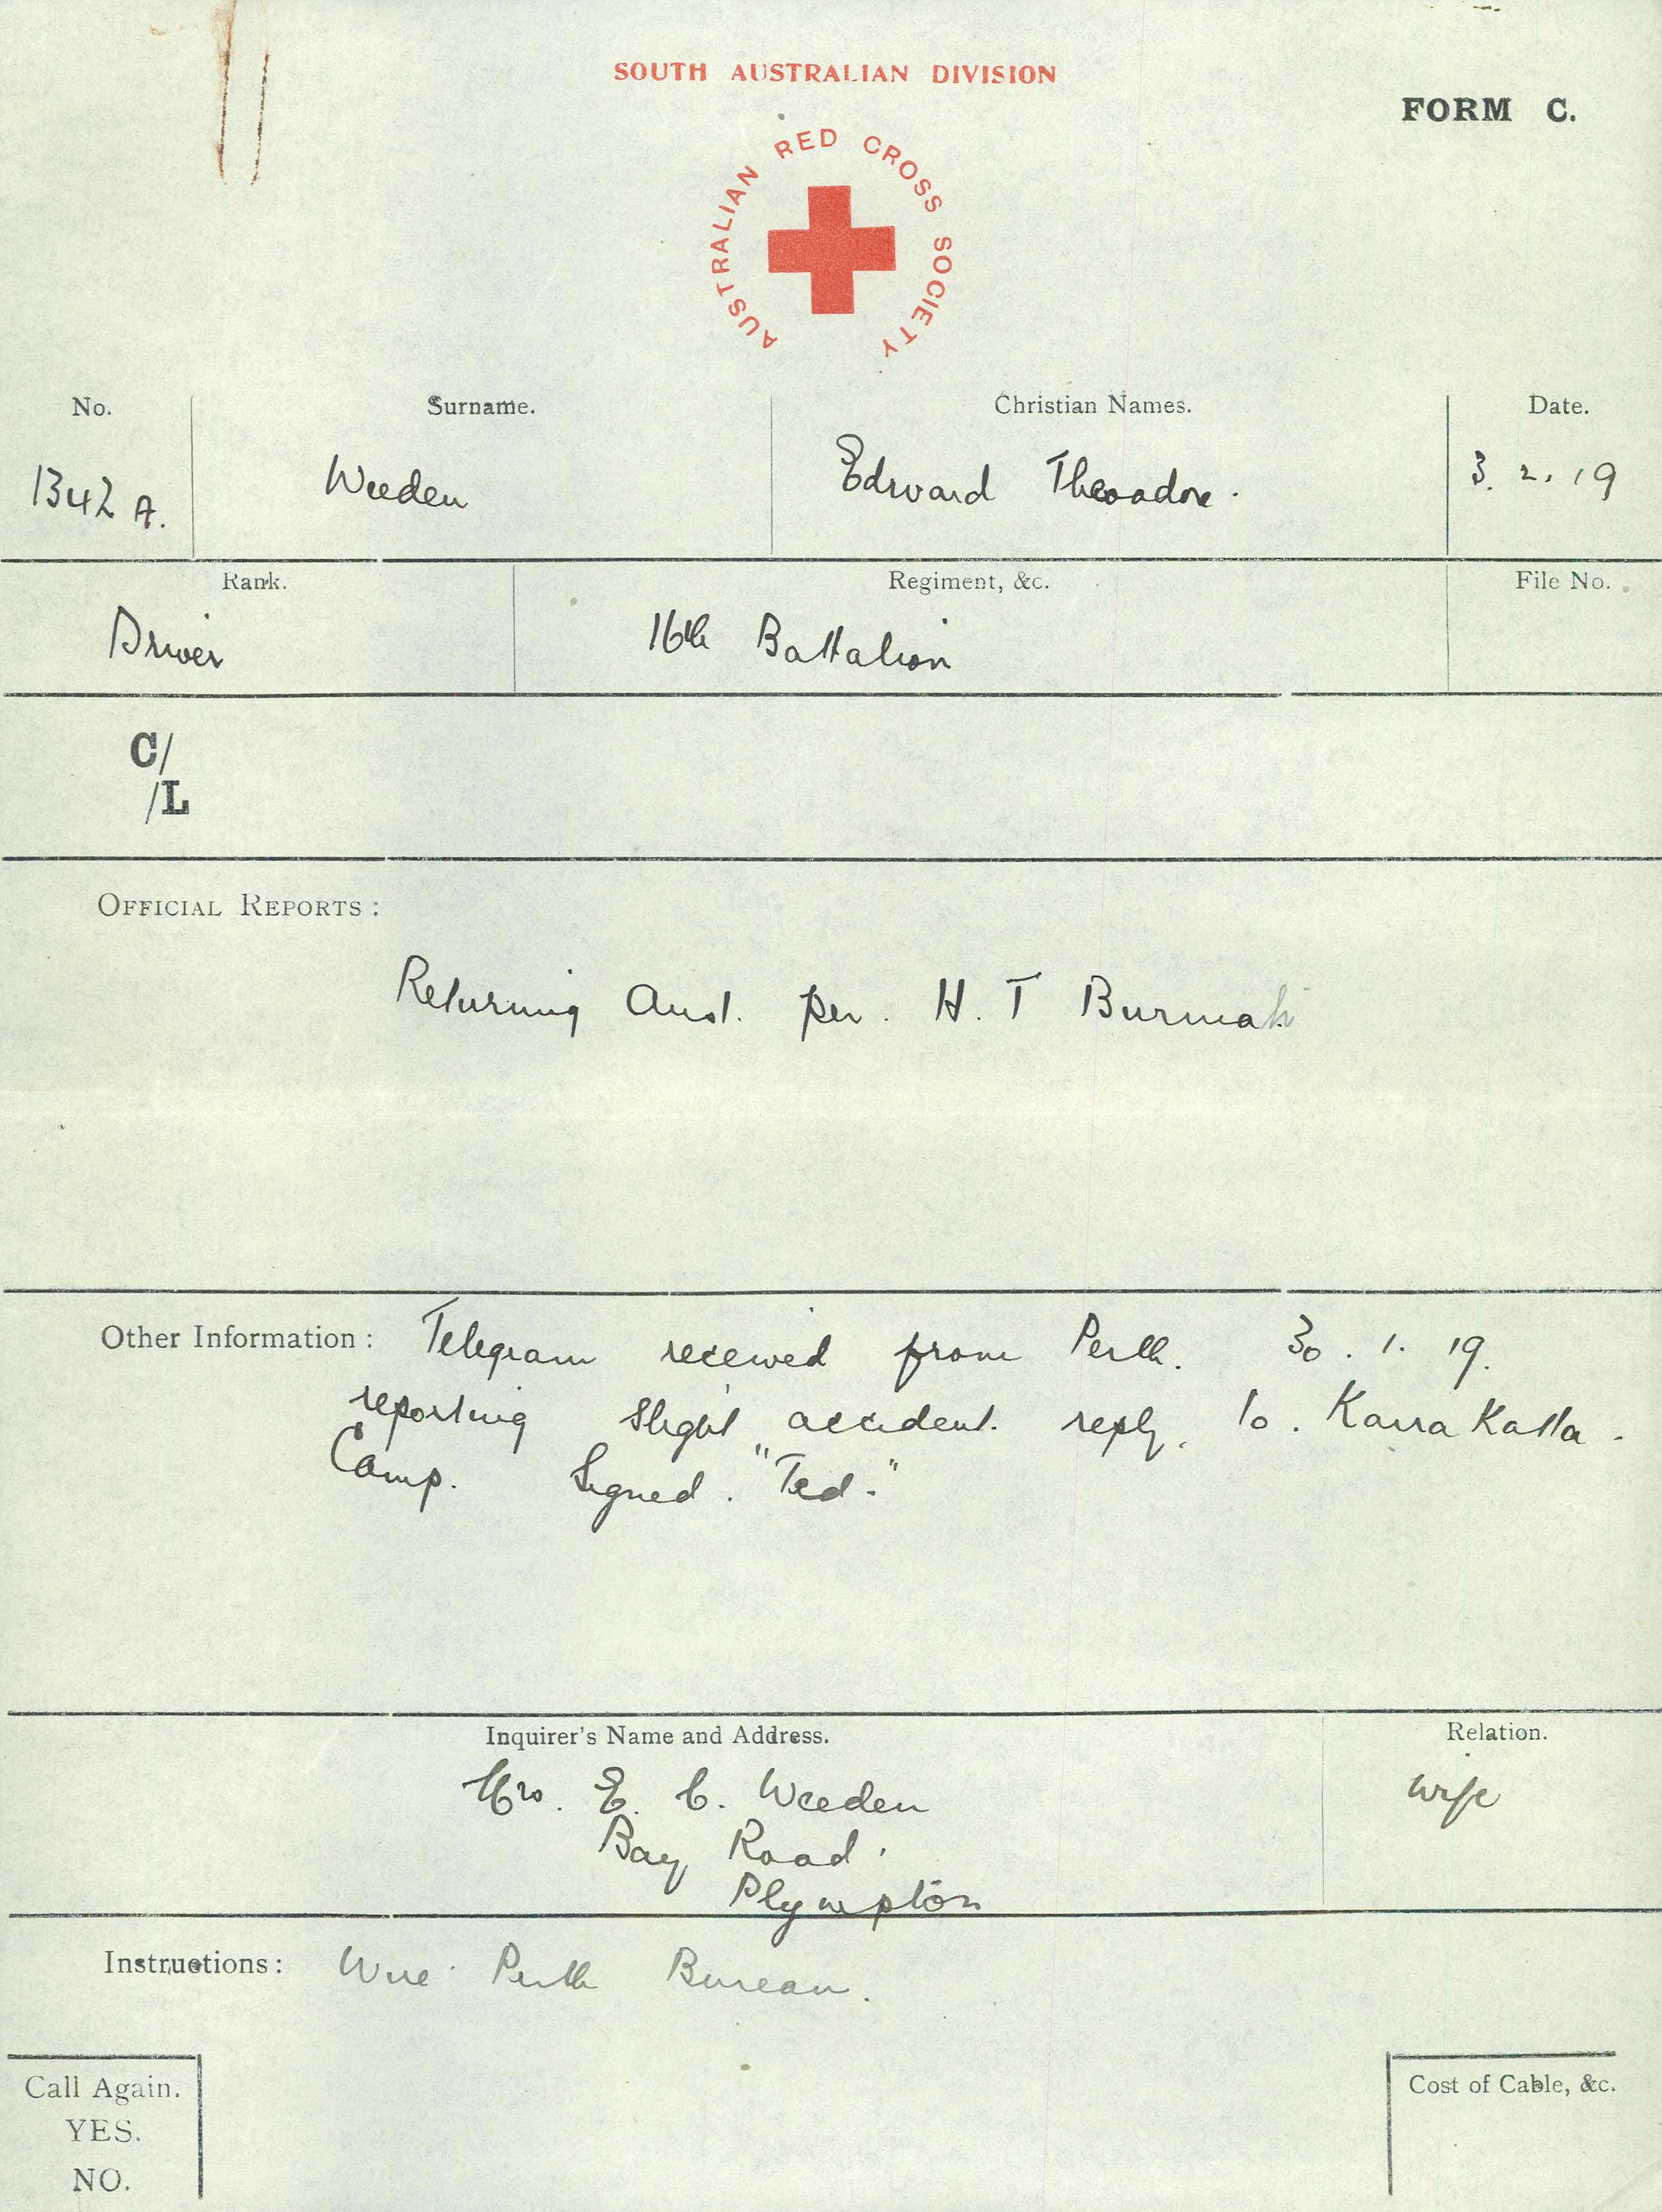 SOUTH AUSTRALIAN DIVISION
FORM C.
AUSTRALIAN RED CROSS SOCIETY
No. Surname. Christian Names. Date.
1342 A. Weeden Edward Theodore. 3. 2. 19
Rank. Regiment, &c. File No.
Driver 16th Battalion
C/
/L
OFFICIAL REPORTS:
Returning Aust. per. H. T Burmah
Other Information: Telegram received from Perth. 30. 1. 19.
reporting slight accident. reply. to. Karra Katta.
Camp. Signed. "Ted."
Inquirer's Name and Address. Relation.
Mrs. E. C. Weeden wife
Bay Road.
Plympton
Instructions: Wire Perth Bureau.
Call Again. Cost of Cable, &c.
YES.
NO.